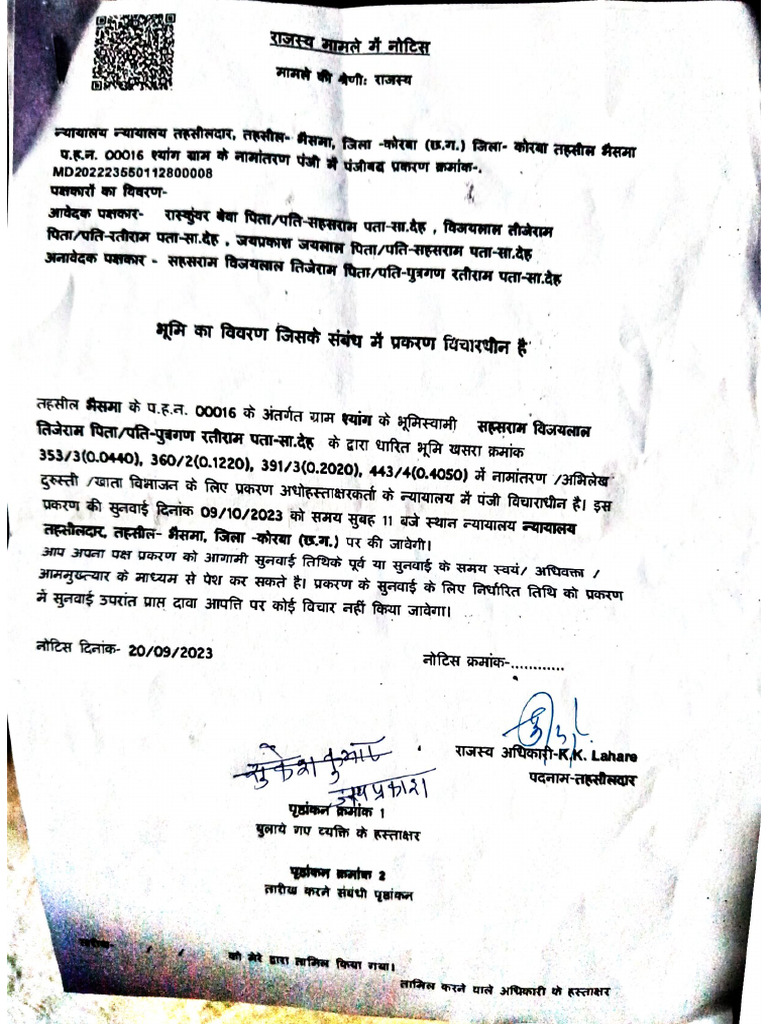 राजस्व मामले में नोटिस
मामले की श्रेणी: राजस्व
न्यायालय न्यायालय तहसीलदार, तहसील- भैसमा, जिला -कोरबा (छ.ग.) जिला- कोरबा तहसील भैसमा
प.ह.न. 00016 श्यांग ग्राम के नामांतरण पंजी में पंजीबद्ध प्रकरण क्रमांक-.
MD202223550112800008
पक्षकारों का विवरण-
आवेदक पक्षकार- रास्कुंवर बेवा पिता/पति-सहसराम पता-सा.देह , विजयलाल तीजेराम
पिता/पति-रतीराम पता-सा.देह , जयप्रकाश जयलाल पिता/पति-सहसराम पता-सा.देह
अनावेदक पक्षकार - सहसराम विजयलाल तिजेराम पिता/पति-पुत्रगण रतीराम पता-सा.देह
भूमि का विवरण जिसके संबंध में प्रकरण विचारधीन है
तहसील भैसमा के प.ह.न. 00016 के अंतर्गत ग्राम श्यांग के भूमिस्वामी सहसराम विजयलाल
तिजेराम पिता/पति-पुत्रगण रतीराम पता-सा.देह के द्वारा धारित भूमि खसरा क्रमांक
353/3(0.0440), 360/2(0.1220), 391/3(0.2020), 443/4(0.4050) में नामांतरण /अभिलेख
दुरुस्ती /खाता विभाजन के लिए प्रकरण अधोहस्ताक्षरकर्ता के न्यायालय में पंजी विचाराधीन है। इस
प्रकरण की सुनवाई दिनांक 09/10/2023 को समय सुबह 11 बजे स्थान न्यायालय न्यायालय
तहसीलदार, तहसील- भैसमा, जिला -कोरबा (छ.ग.) पर की जावेगी।
आप अपना पक्ष प्रकरण को आगामी सुनवाई तिथिके पूर्व या सुनवाई के समय स्वयं/ अधिवक्ता /
आममुख्त्यार के माध्यम से पेश कर सकते है। प्रकरण के सुनवाई के लिए निर्धारित तिथि को प्रकरण
में सुनवाई उपरांत प्राप्त दावा आपत्ति पर कोई विचार नहीं किया जावेगा।
नोटिस दिनांक- 20/09/2023
नोटिस क्रमांक-............
राजस्व अधिकारी-K.K. Lahare
पदनाम-तहसीलदार
सुकेश कुमार
जयप्रकाश
पृष्ठांकन क्रमांक 1
बुलाये गए व्यक्ति के हस्ताक्षर
पृष्ठांकन क्रमांक 2
तारीख करने संबंधी पृष्ठांकन
तारीख- / / को मेरे द्वारा तामिल किया गया।
तामिल करने वाले अधिकारी के हस्ताक्षर